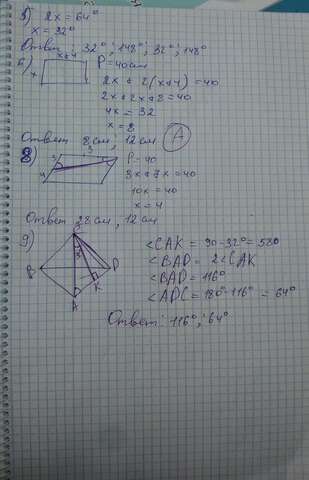 5) 2x = 64°
x = 32°
Ответ: 32°; 148°; 32°; 148°
6) x+4 P = 40см
x 2x + 2(x+4) = 40
2x + 2x + 8 = 40
4x = 32
x = 8
Ответ 8 см; 12 см А
8) 3 P = 40
4 3x + 7x = 40
10x = 40
x = 4
Ответ 28 см, 12 см
9) <CAK = 90-32° = 58°
B D <BAD = 2<CAK
K <BAD = 116°
A <ADC = 180°-116° = 64°
Ответ: 116°; 64°